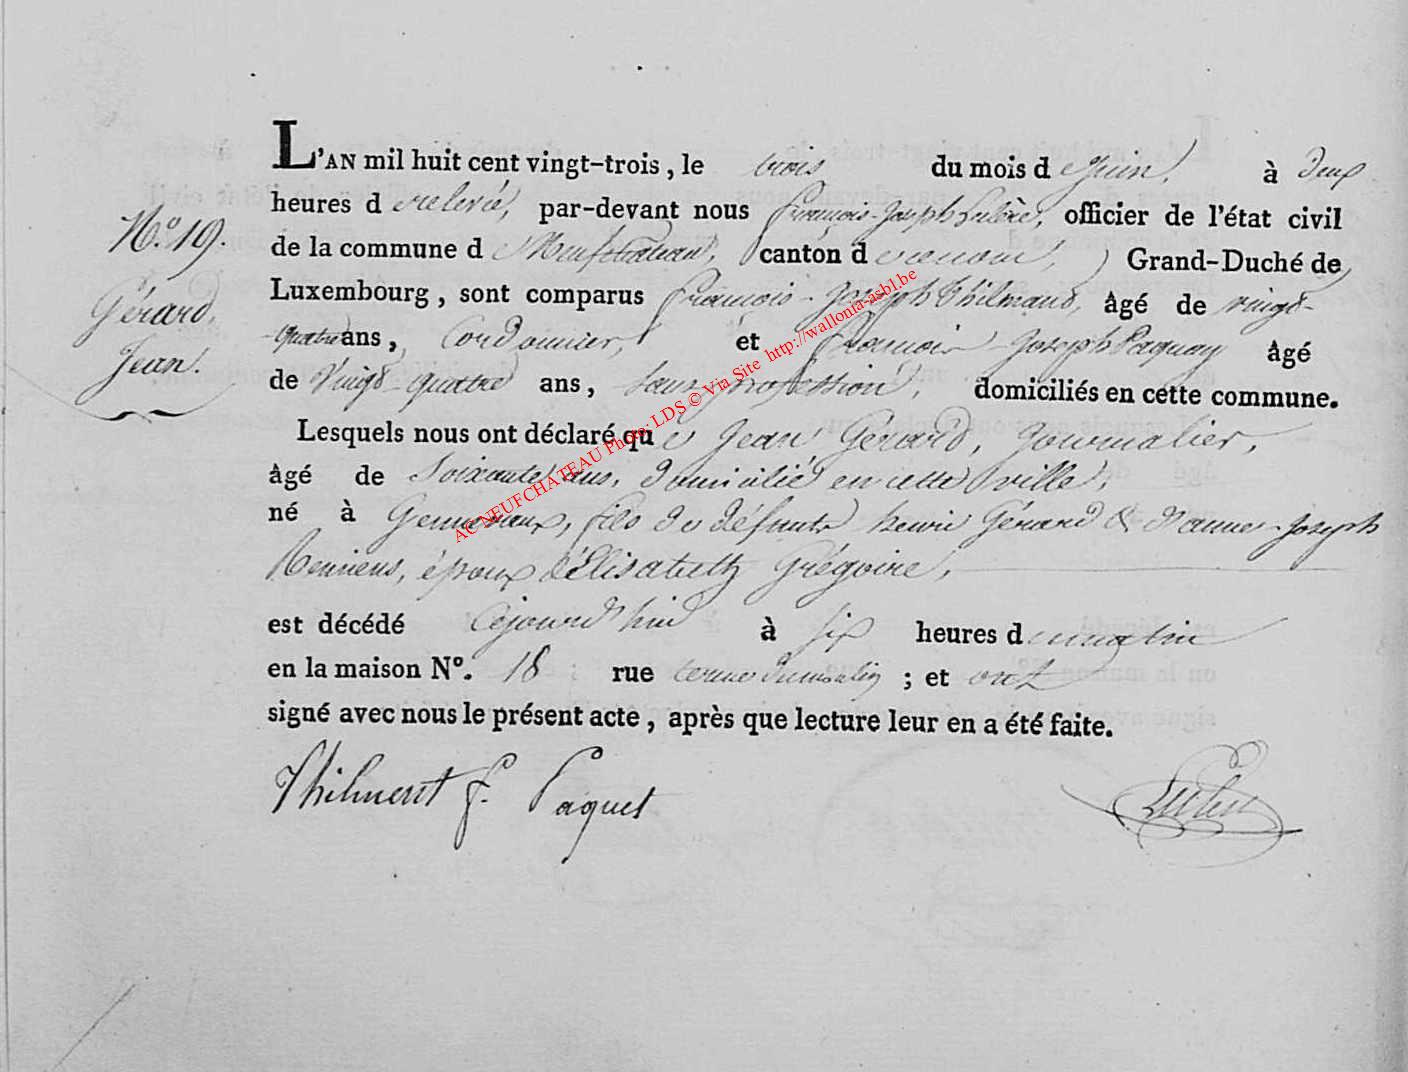 L'AN mil huit cent vingt-trois, le trois du mois de Juin, à deux
heures de relevée, par-devant nous François-Joseph officier de l'état civil
de la commune de Neufchateau, canton de Grand-Duché de
N.º 19.
Gérard,
Jean.
Luxembourg, sont comparus François-Joseph Thilmand, âgé de vingt-
quatre ans, Cordonnier, et François-Joseph Paquay âgé
de Vingt-quatre ans, sans profession, domiciliés en cette commune.
Lesquels nous ont déclaré que Jean Gérard, Journalier,
âgé de Soixante ans, domicilié en cette ville,
né à fils de défunts henri Gérard & d'anne-Joseph
époux d'Élisabeth Grégoire,
est décédé Cejourd'hui à six heures du matin
en la maison Nº. 18 rue ; et ont
signé avec nous le présent acte, après que lecture leur en a été faite.
Thilment f. Paquet
AC NEUFCHATEAU Photo: LDS © Via Site http://wallonia-asbl.be